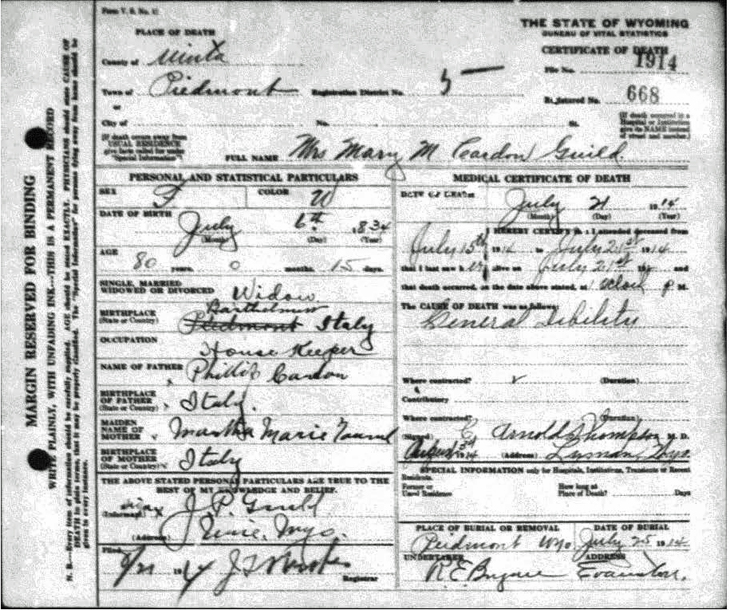 Form V. S. No. 11
THE STATE OF WYOMING
BUREAU OF VITAL STATISTICS
CERTIFICATE OF DEATH
1914
File No.
Registered No. 668
(If death occurred in a Hospital or Institution give its NAME instead of street and number.)
PLACE OF DEATH
County of Uinta
Town of Piedmont Registration District No. 5 —
or
City of No. St.
(If death occurs away from USUAL RESIDENCE give facts called for under "Special Information")
FULL NAME Mrs Mary M Cardon Guild
PERSONAL AND STATISTICAL PARTICULARS
SEX F COLOR W
DATE OF BIRTH July 6th 1834
(Month) (Day) (Year)
AGE 80 years 0 months 15 days
SINGLE, MARRIED WIDOWED OR DIVORCED Widow
BIRTHPLACE (State or Country) Piedmont Italy
OCCUPATION House Keeper
NAME OF FATHER Phillip Cardon
BIRTHPLACE OF FATHER (State or Country) Italy
MAIDEN NAME OF MOTHER Martha Marie
BIRTHPLACE OF MOTHER (State or Country) Italy
THE ABOVE STATED PERSONAL PARTICULARS ARE TRUE TO THE BEST OF MY KNOWLEDGE AND BELIEF.
(Informant) J. P. Guild
(Address) Wyo.
Filed 1914
Registrar
MEDICAL CERTIFICATE OF DEATH
DATE OF DEATH July 21 1914
(Month) (Day) (Year)
I HEREBY CERTIFY That I attended deceased from
July 15th 1914 to July 21st 1914
that I last saw her alive on July 21st 191 and
that death occurred, on the date above stated, at P M.
The CAUSE OF DEATH was as follows:
General Debility
Where contracted? (Duration)
Contributory
Where contracted? (Duration)
(Signed) C Arnold Thompson M. D.
August 3rd 1914 (Address) Lyman, Wyo.
SPECIAL INFORMATION only for Hospitals, Institutions, Transients or Recent Residents.
Former or Usual Residence How long at Place of Death? Days
PLACE OF BURIAL OR REMOVAL DATE OF BURIAL
Piedmont Wyo July 25 1914
UNDERTAKER ADDRESS
Evanston
MARGIN RESERVED FOR BINDING
WRITE PLAINLY, WITH UNFADING INK—THIS IS A PERMANENT RECORD